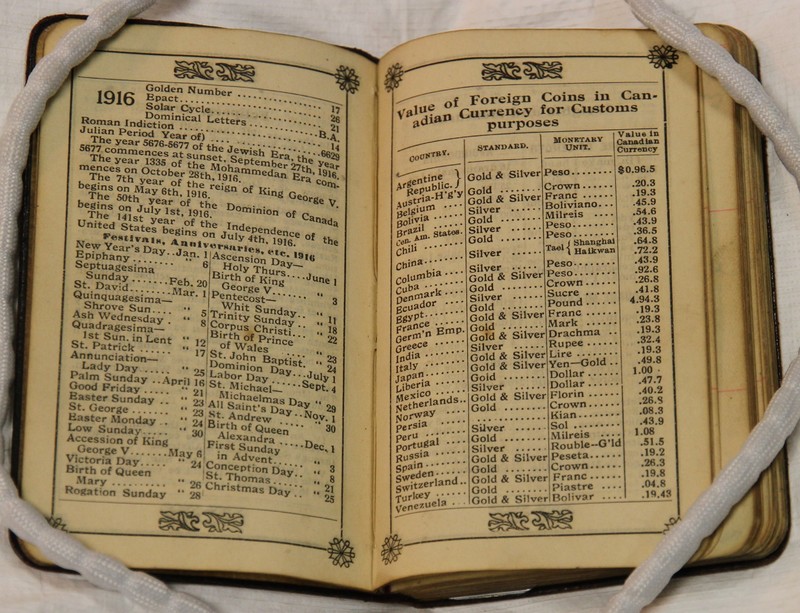 1916
Golden Number .................. 17
Epact .................. 26
Solar Cycle .................. 21
Dominical Letters .................. B.A.
Roman Indiction .................. 14
Julian Period Year of) .................. 6629
The year 5676-5677 of the Jewish Era, the year
5677 commences at sunset, September 27th, 1916.
The year 1335 of the Mohammedan Era com-
mences on October 28th, 1916.
The 7th year of the reign of King George V.
begins on May 6th, 1916.
The 50th year of the Dominion of Canada
begins on July 1st, 1916.
The 141st year of the Independence of the
United States begins on July 4th, 1916.
Festivals, Anniversaries, etc. 1916
New Year's Day .. Jan. 1
Epiphany ........ " 6
Septuagesima
Sunday ....... Feb. 20
St. David ....... Mar. 1
Quinquagesima—
Shrove Sun .... " 5
Ash Wednesday . " 8
Quadragesima—
1st Sun. in Lent " 12
St. Patrick ..... " 17
Annunciation—
Lady Day ..... " 25
Palm Sunday .. April 16
Good Friday .... " 21
Easter Sunday .. " 23
St. George ...... " 23
Easter Monday .. " 24
Low Sunday ..... " 30
Accession of King
George V. ...... May 6
Victoria Day .... " 24
Birth of Queen
Mary .......... " 26
Rogation Sunday " 28
Ascension Day—
Holy Thurs .... June 1
Birth of King
George V. ...... " 3
Pentecost—
Whit Sunday .. " 11
Trinity Sunday .. " 18
Corpus Christi ... " 22
Birth of Prince
of Wales .... " 23
St. John Baptist. " 24
Dominion Day ... July 1
Labor Day ...... Sept. 4
St. Michael—
Michaelmas Day " 29
All Saint's Day .. Nov. 1
St. Andrew ..... " 30
Birth of Queen
Alexandra ..... Dec. 1
First Sunday
in Advent ...... " 3
Conception Day .. " 8
St. Thomas ...... " 21
Christmas Day .. " 25
Value of Foreign Coins in Can-
adian Currency for Customs
purposes
COUNTRY. STANDARD. MONETARY UNIT. Value in Canadian Currency
Argentine Republic. } Gold & Silver Peso ........ $0.96.5
Austria-H'g'y Gold ....... Crown ...... .20.3
Belgium ..... Gold & Silver Franc ....... .19.3
Bolivia ...... Silver ...... Boliviano .... .45.9
Brazil ....... Gold ....... Milreis .... .54.6
Cen. Am. States. Silver ...... Peso ........ .43.9
Chili ........ Gold ....... Peso ........ .36.5
China ........ Silver ...... Tael { Shanghai .64.8
Haikwan .72.2
Columbia .... Silver ...... Peso ........ .43.9
Cuba ........ Gold & Silver Peso ........ .92.6
Denmark .... Gold ....... Crown ...... .26.8
Ecuador .... Silver ...... Sucre ...... .41.8
Egypt ....... Gold ....... Pound ...... 4.94.3
France ...... Gold & Silver Franc ...... .19.3
Germ'n Emp. Gold ....... Mark ....... .23.8
Greece ...... Gold & Silver Drachma .. .19.3
India ....... Silver ...... Rupee ...... .32.4
Italy ....... Gold & Silver Lire ....... .19.3
Japan ....... Gold & Silver Yen—Gold .. .49.8
Liberia ..... Gold ....... Dollar ..... 1.00
Mexico ...... Silver ...... Dollar ..... .47.7
Netherlands .. Gold & Silver Florin ..... .40.2
Norway ..... Gold ....... Crown ...... .26.8
Persia ...... ........ Kian ....... .08.3
Peru ........ Silver ...... Sol ........ .43.9
Portugal .... Gold ....... Milreis .... 1.08
Russia ...... Silver ...... Rouble—G'ld .51.5
Spain ....... Gold & Silver Peseta ..... .19.2
Sweden ..... Gold ....... Crown ...... .26.3
Switzerland .. Gold & Silver Franc ...... .19.8
Turkey ..... Gold ....... Piastre .... .04.8
Venezuela .. Gold & Silver Bolivar .... .19.43